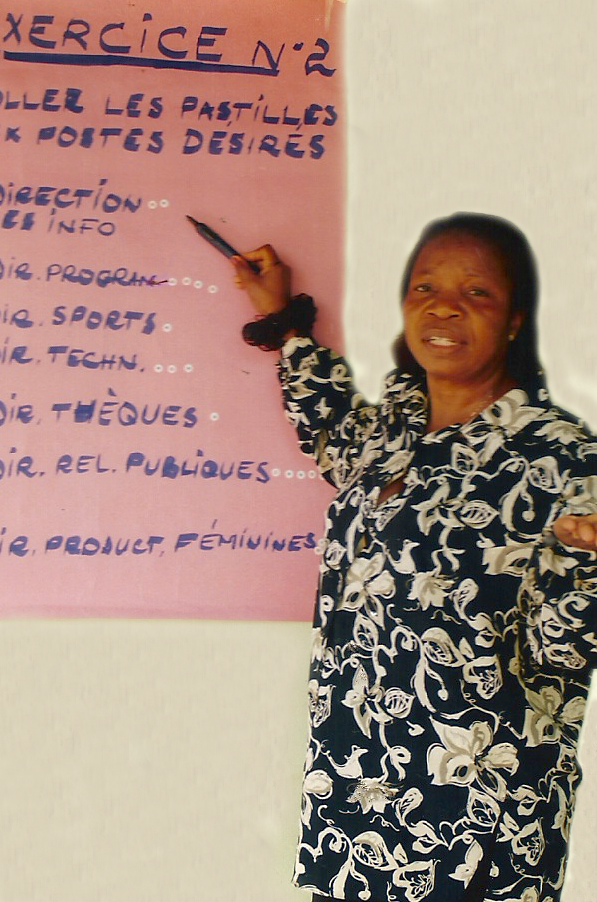 XERCiCE N°2
OLLER LES PASTiLLES
X POSTES DÉSiRÉS
DiRECTiON
ES iNFO
DiR. PROGRAM
DiR. SPORTS
DiR. TECHN.
DiR. THÈQUES
DiR. REL. PUBLiQUES
DiR. PRODUCT. FÉMiNiNES